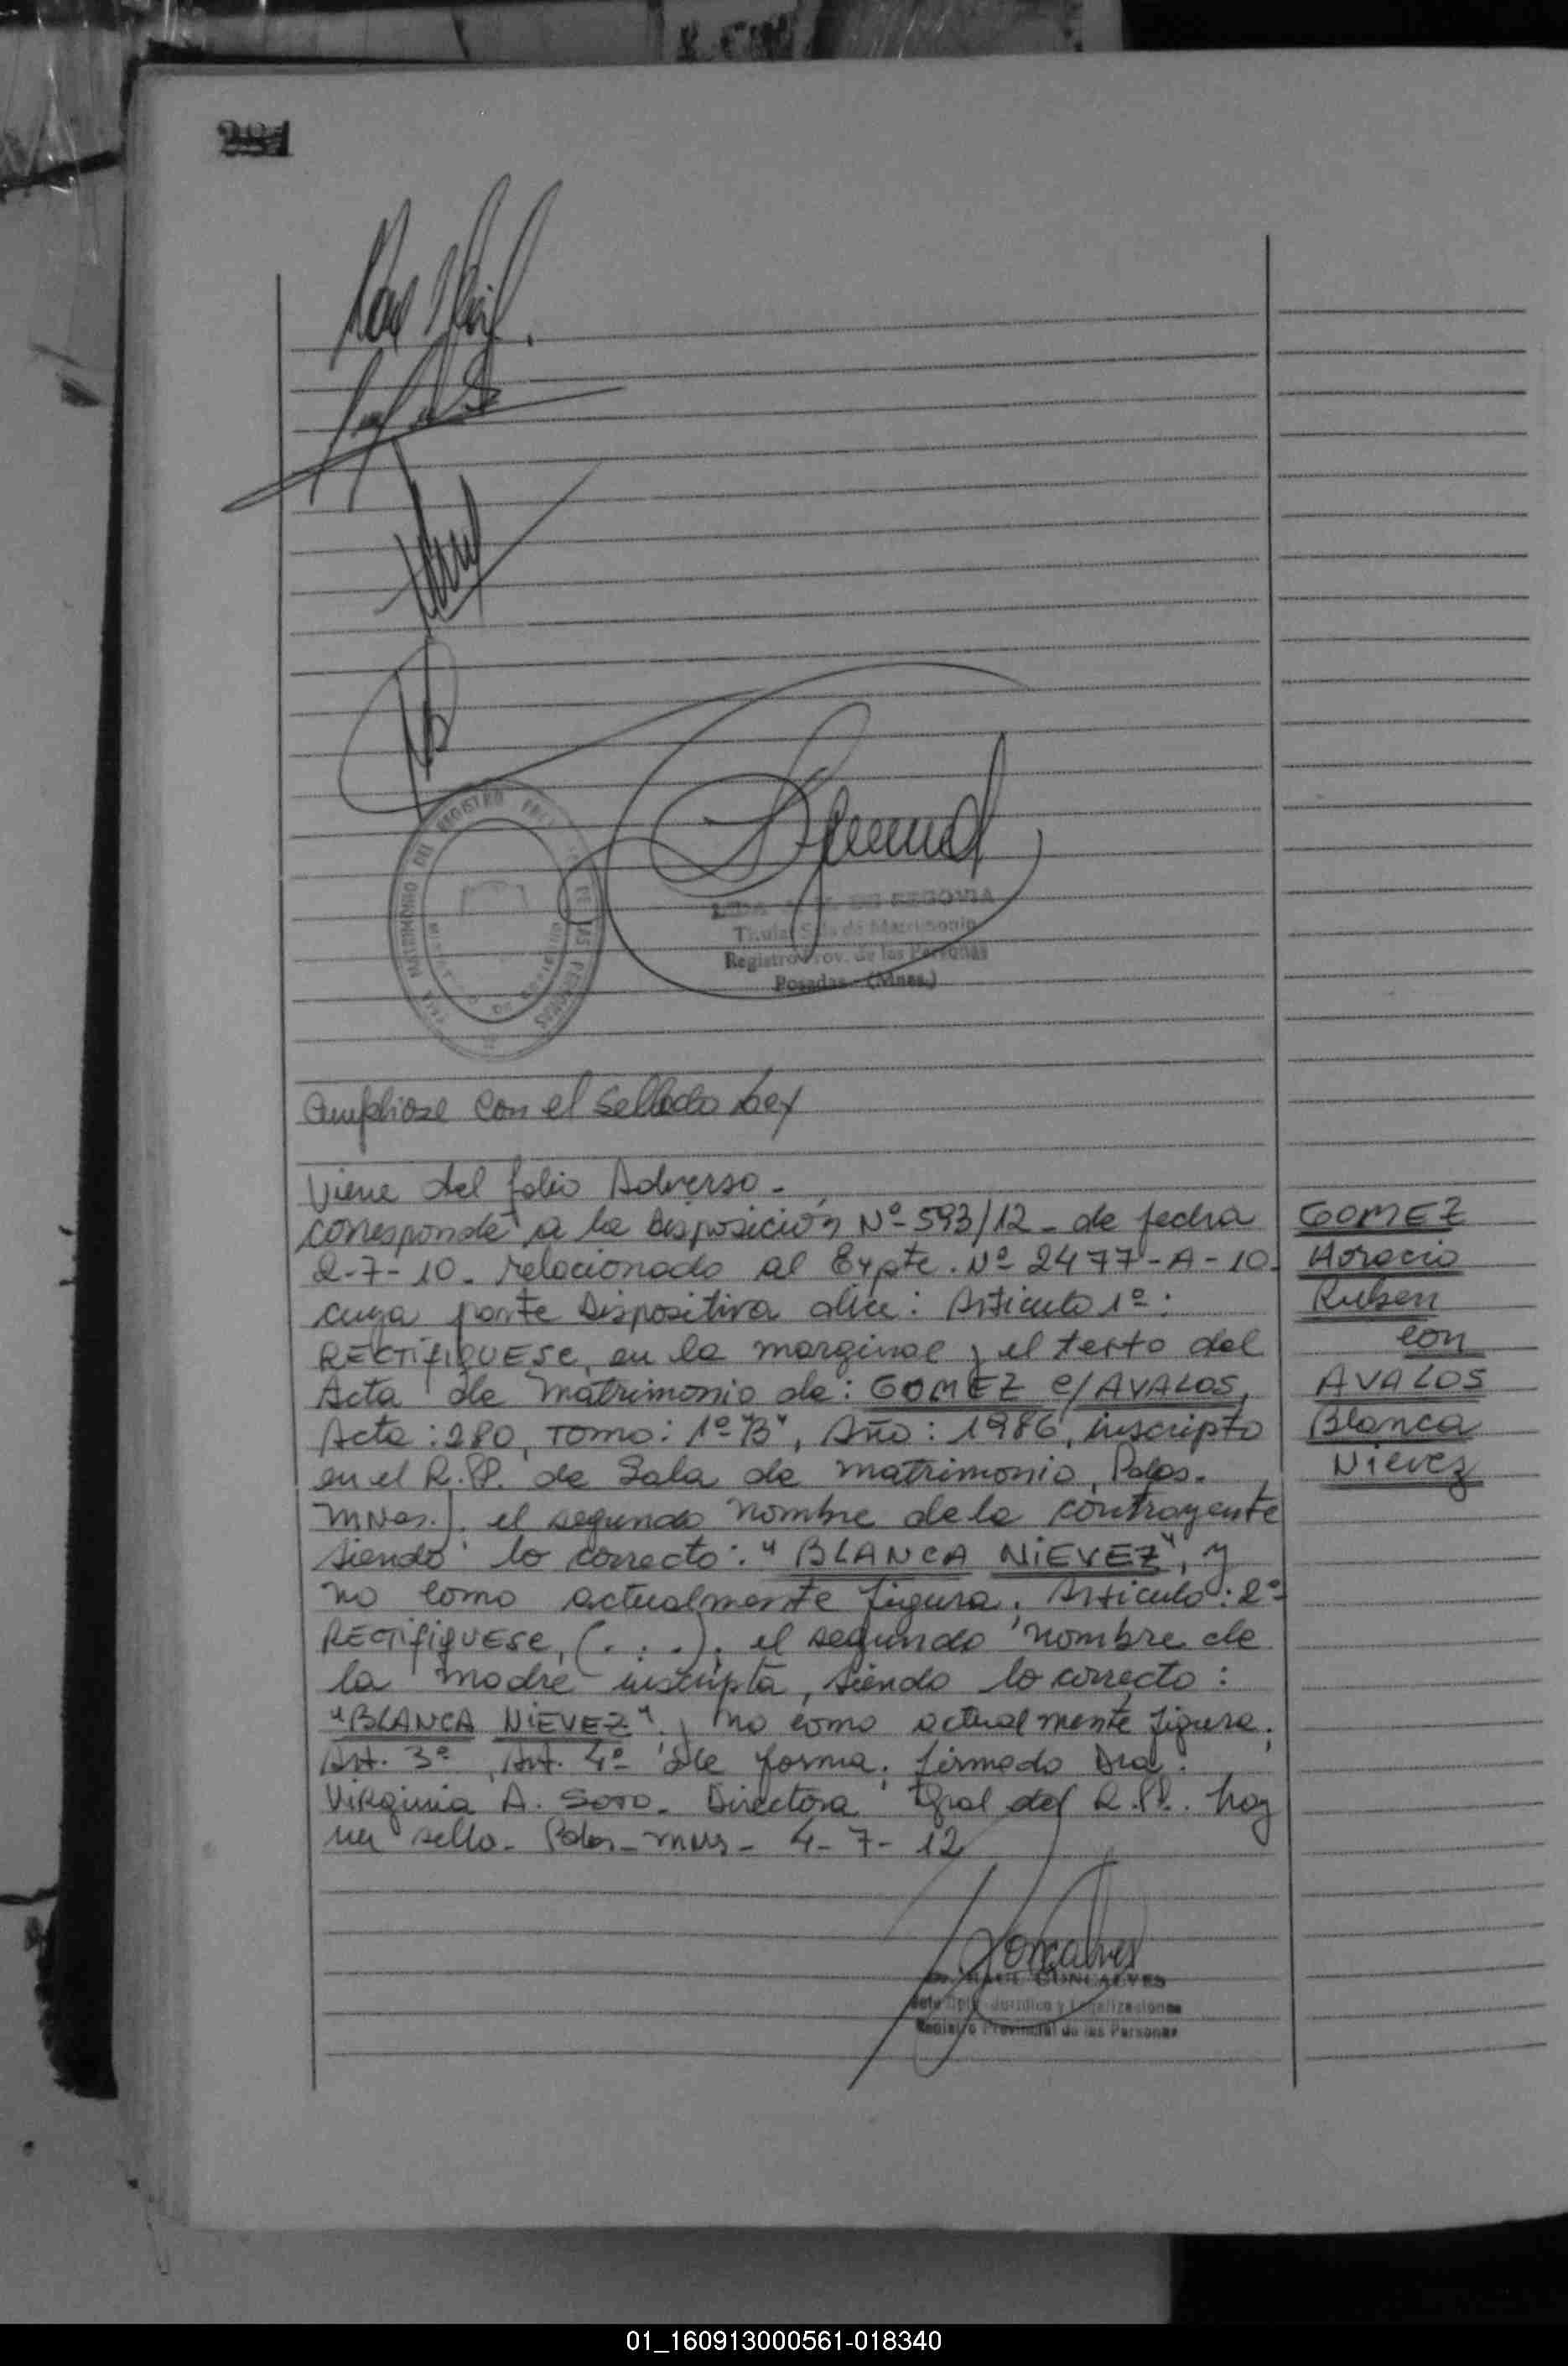 281
REGISTRO
DE LAS PERSONAS
SALA MATRIMONIO DEL
DE SEGOVIA
Titular Sala de Matrimonio
Registro Prov. de las Personas
Posadas - (Mnes.)
con el sellado Ley
Viene del folio Adverso -
corresponde a la Disposición Nº 593/12 - de fecha
2-7-10. relacionado al Expte. Nº 2477-A-10.
cuya parte Dispositiva dice: Articulo 1º:
RECTIFIQUESE, en la marginal y el texto del
Acta de Matrimonio de: GOMEZ c/ AVALOS,
Acta: 280, Tomo: 1º "B", Año: 1986, inscripto
en el R.P.P. de Sala de Matrimonio, Pdas.
MNes.), el segundo nombre de la contrayente
siendo lo correcto: "BLANCA NIEVEZ", y
no como actualmente figura. Articulo: 2º
RECTIFIQUESE, (...), el segundo nombre de
la madre inscripta, siendo lo correcto:
"BLANCA NIEVEZ", y no como actualmente figura.
Art. 3º, Art. 4º de forma. firmado Dra.
Virginia A. Soto. Directora Gral del R.P.P. hay
un sello - Pdas - MNs - 4-7-12
GOMEZ
Horacio
Ruben
con
AVALOS
Blanca
Nievez
Goncalves
RAUL GONCALVES
Jefe Dpto. Juridico y Legalizaciones
Registro Provincial de las Personas
01_160913000561-018340